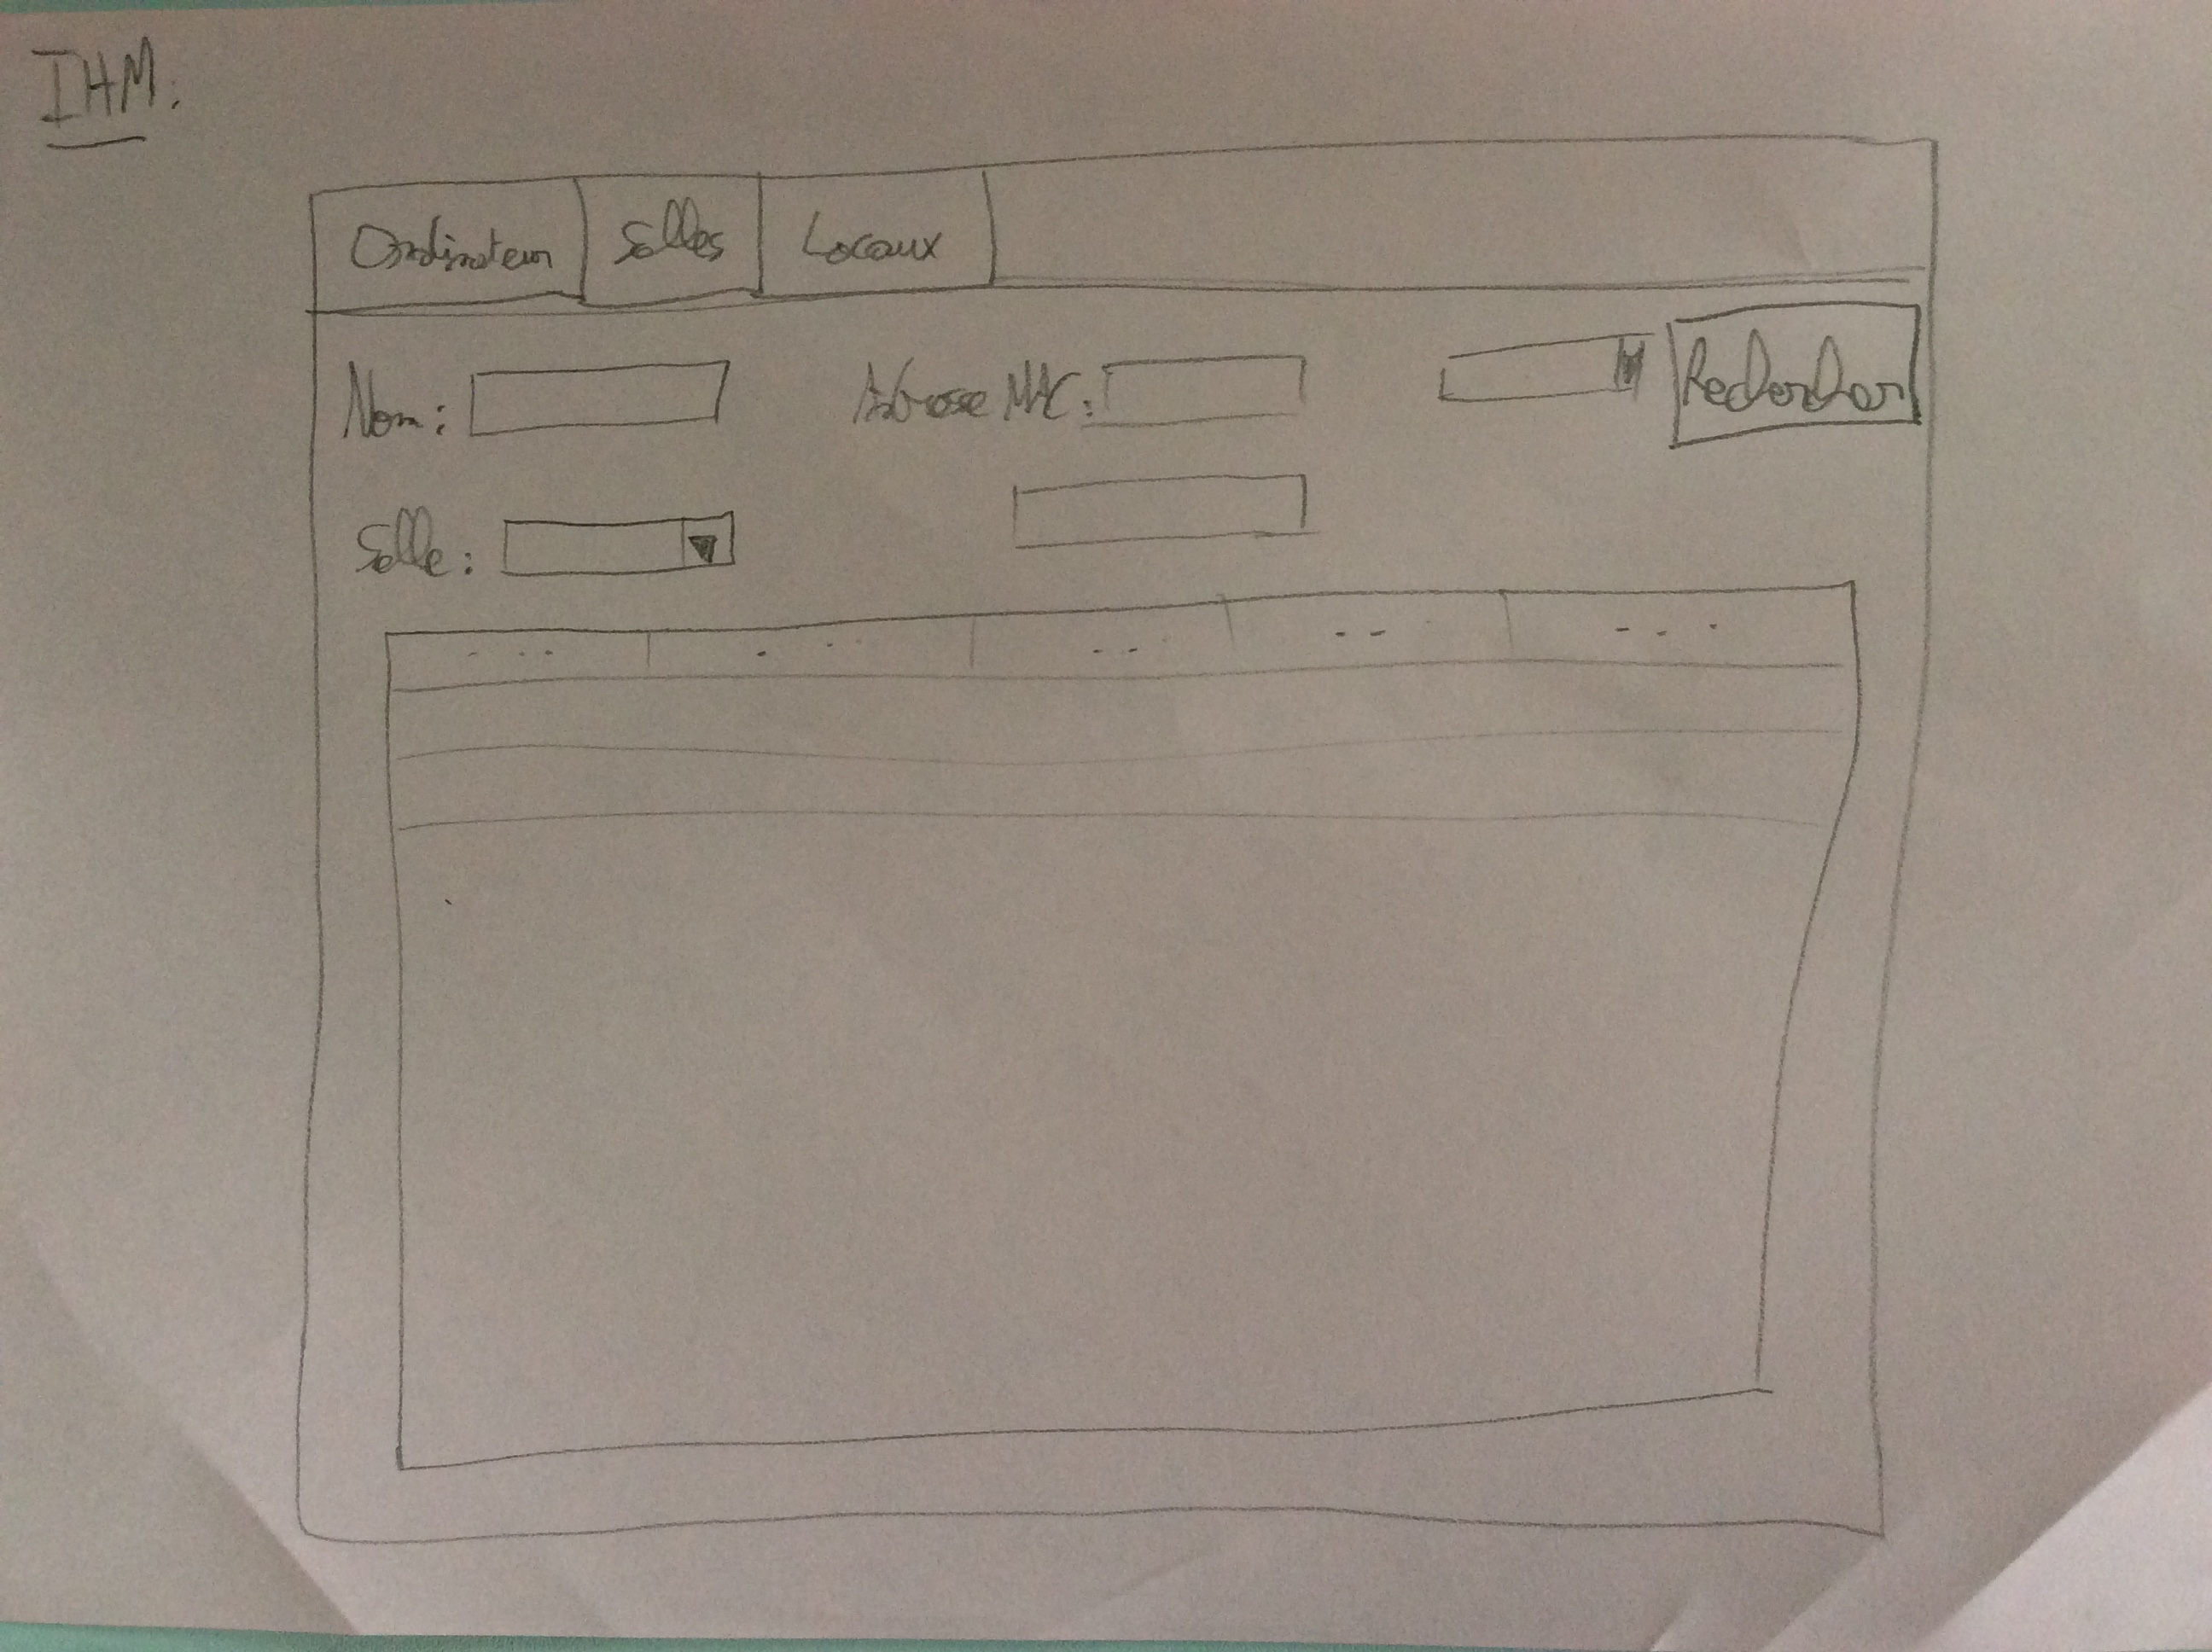 IHM:
Ordinateur Salles Locaux
Nom: Adresse MAC: Rechercher
Salle: